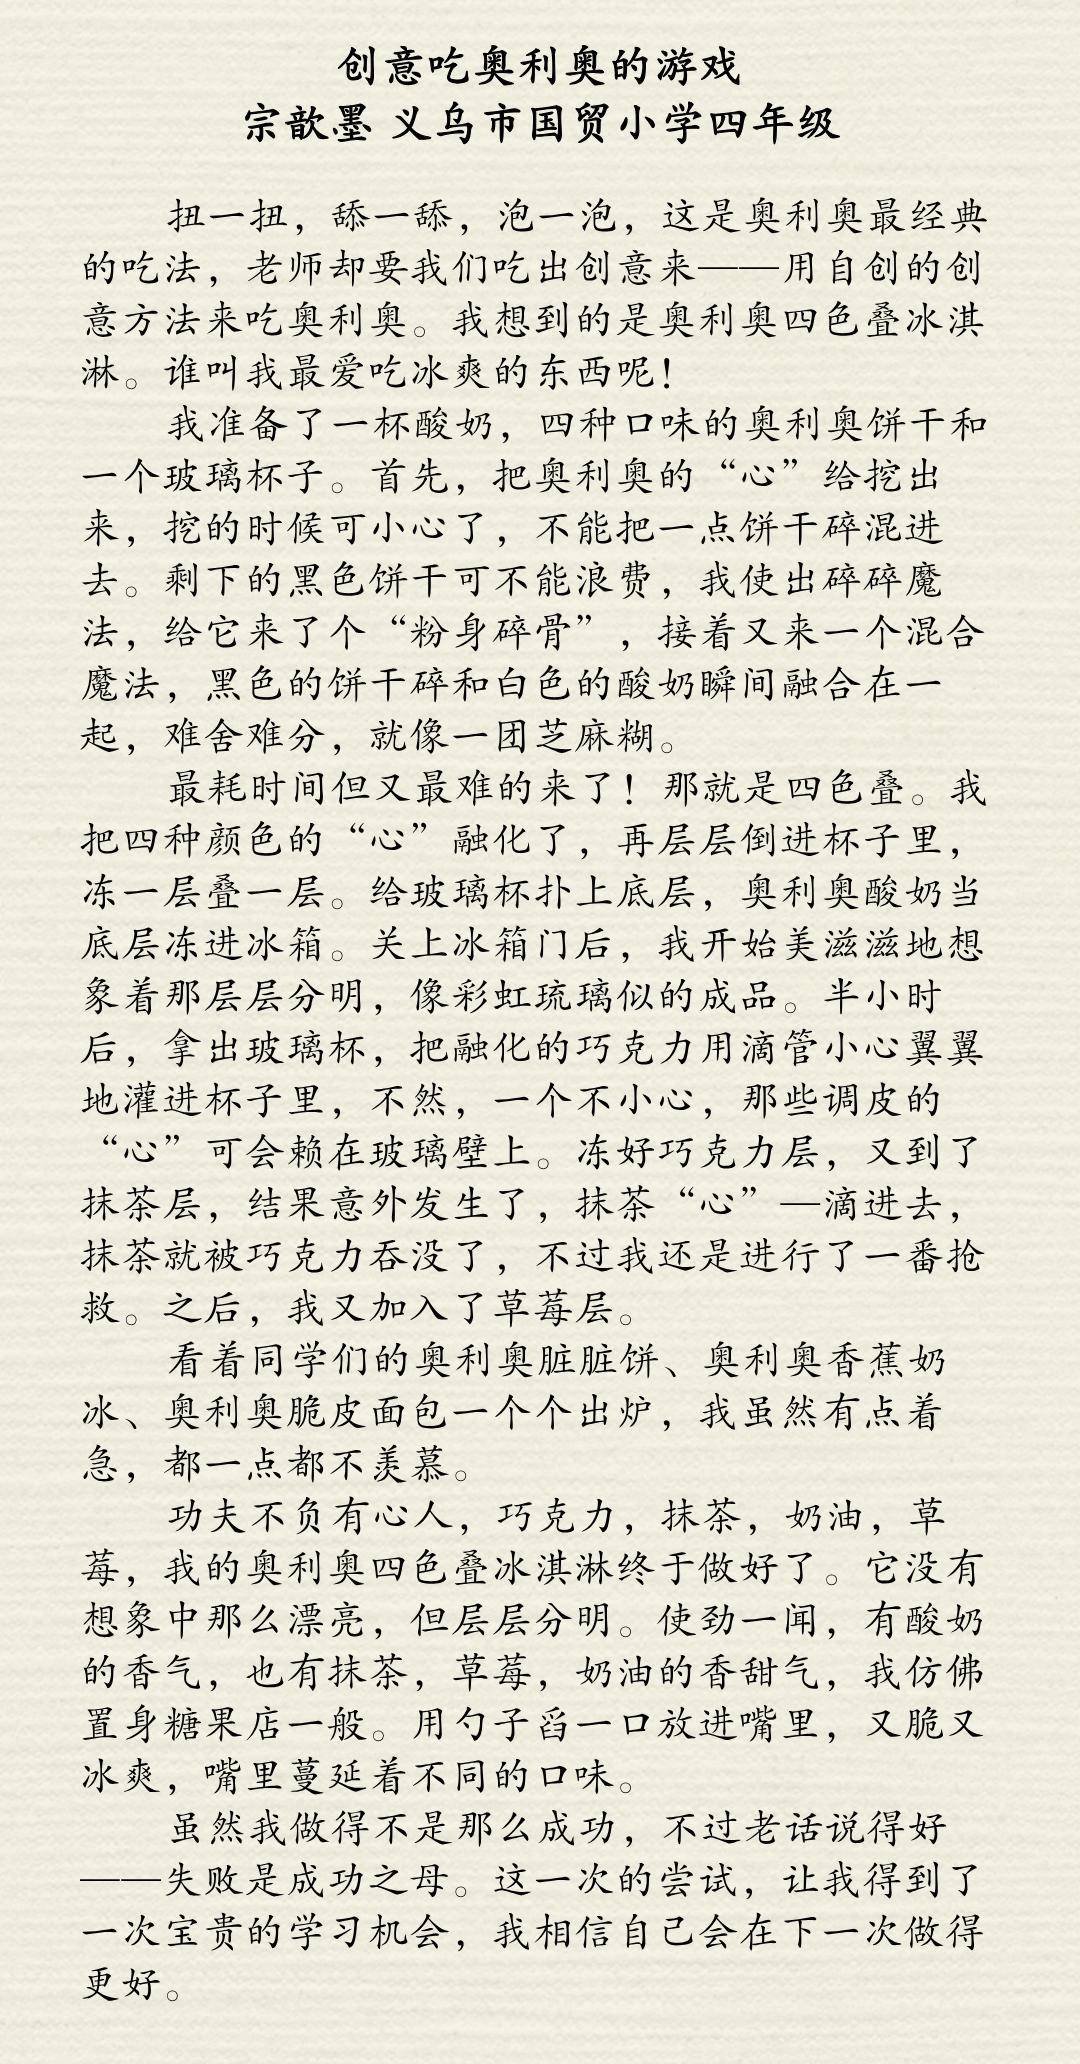 创意吃奥利奥的游戏
宗歆墨 义乌市国贸小学四年级
扭一扭，舔一舔，泡一泡，这是奥利奥最经典
的吃法，老师却要我们吃出创意来——用自创的创
意方法来吃奥利奥。我想到的是奥利奥四色叠冰淇
淋。谁叫我最爱吃冰爽的东西呢！
我准备了一杯酸奶，四种口味的奥利奥饼干和
一个玻璃杯子。首先，把奥利奥的“心”给挖出
来，挖的时候可小心了，不能把一点饼干碎混进
去。剩下的黑色饼干可不能浪费，我使出碎碎魔
法，给它来了个“粉身碎骨”，接着又来一个混合
魔法，黑色的饼干碎和白色的酸奶瞬间融合在一
起，难舍难分，就像一团芝麻糊。
最耗时间但又最难的来了！那就是四色叠。我
把四种颜色的“心”融化了，再层层倒进杯子里，
冻一层叠一层。给玻璃杯扑上底层，奥利奥酸奶当
底层冻进冰箱。关上冰箱门后，我开始美滋滋地想
象着那层层分明，像彩虹琉璃似的成品。半小时
后，拿出玻璃杯，把融化的巧克力用滴管小心翼翼
地灌进杯子里，不然，一个不小心，那些调皮的
“心”可会赖在玻璃壁上。冻好巧克力层，又到了
抹茶层，结果意外发生了，抹茶“心”—滴进去，
抹茶就被巧克力吞没了，不过我还是进行了一番抢
救。之后，我又加入了草莓层。
看着同学们的奥利奥脏脏饼、奥利奥香蕉奶
冰、奥利奥脆皮面包一个个出炉，我虽然有点着
急，都一点都不羡慕。
功夫不负有心人，巧克力，抹茶，奶油，草
莓，我的奥利奥四色叠冰淇淋终于做好了。它没有
想象中那么漂亮，但层层分明。使劲一闻，有酸奶
的香气，也有抹茶，草莓，奶油的香甜气，我仿佛
置身糖果店一般。用勺子舀一口放进嘴里，又脆又
冰爽，嘴里蔓延着不同的口味。
虽然我做得不是那么成功，不过老话说得好
——失败是成功之母。这一次的尝试，让我得到了
一次宝贵的学习机会，我相信自己会在下一次做得
更好。